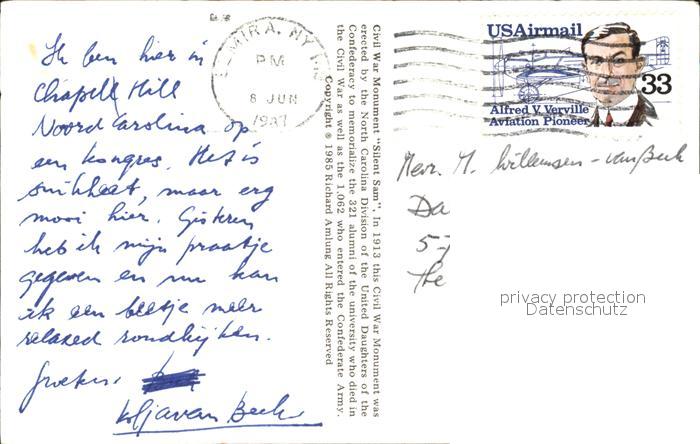 Ik ben hier in
Chapell Hill
Noord Carolina op
een kongres. Het is
snikheet, maar erg
mooi hier. Gisteren
heb ik mijn praatje
gegeven en nu kan
ik een beetje meer
relaxed rondkijken.
Groeten,
van Beek
ELMIRA, NY
PM
8 JUN
Civil War Monument "Silent Sam". In 1913 this Civil War Monument was
erected by the North Carolina Division of the United Daughters of the
Confederacy to memorialize the 321 alumni of the university who died in
the Civil War as well as the 1,062 who entered the Confederate Army.
Copyright © 1985 Richard Amlung All Rights Reserved
USAirmail
33
Alfred V. Verville
Aviation Pioneer
Mevr. M. Willemsen-van Beek
Da
5-
The
privacy protection
Datenschutz